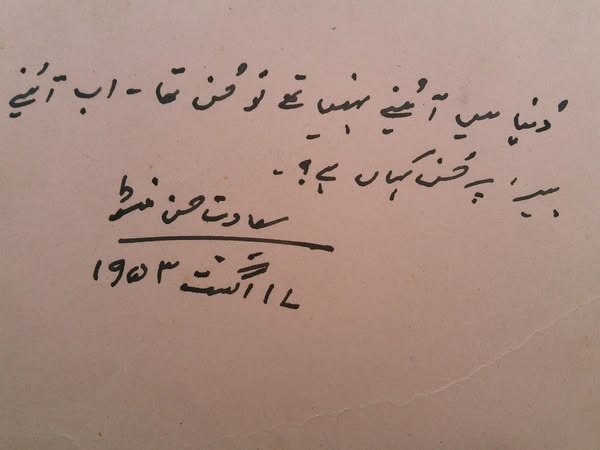 دُنیا میں آئینے نہیں تھے تو حُسن تھا - اب آئینے
ہیں، پر حُسن کہاں ہے؟ -
سعادت حسن منٹو
۱۷ اگست ۱۹۵۳